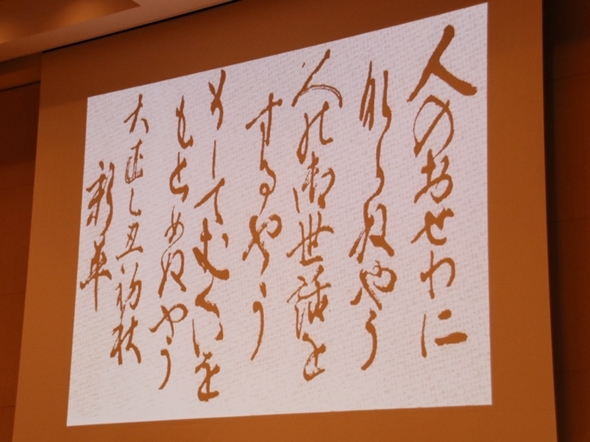 人のおせわに
ならぬやう
人の御世話を
するやう
そしてむくいを
もとめぬやう
大正乙丑初秋
新平